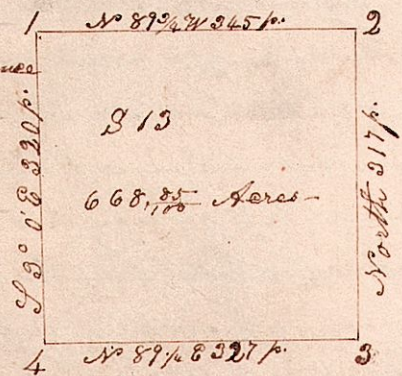 1 N 89¾ W 345 p. 2
S 3° 0' E 320 p.
S 13
668,85/100 Acres
North 317 p.
4 N 89 ½ E 327 p. 3